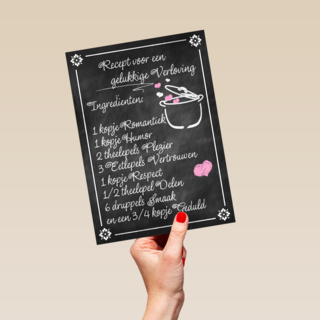 Recept voor een
gelukkige Verloving
Ingredienten:
1 kopje Romantiek
1 kopje Humor
2 theelepels Plezier
3 Eetlepels Vertrouwen
1 kopje Respect
1/2 theelepel Delen
6 druppels Smaak
en een 3/4 kopje Geduld